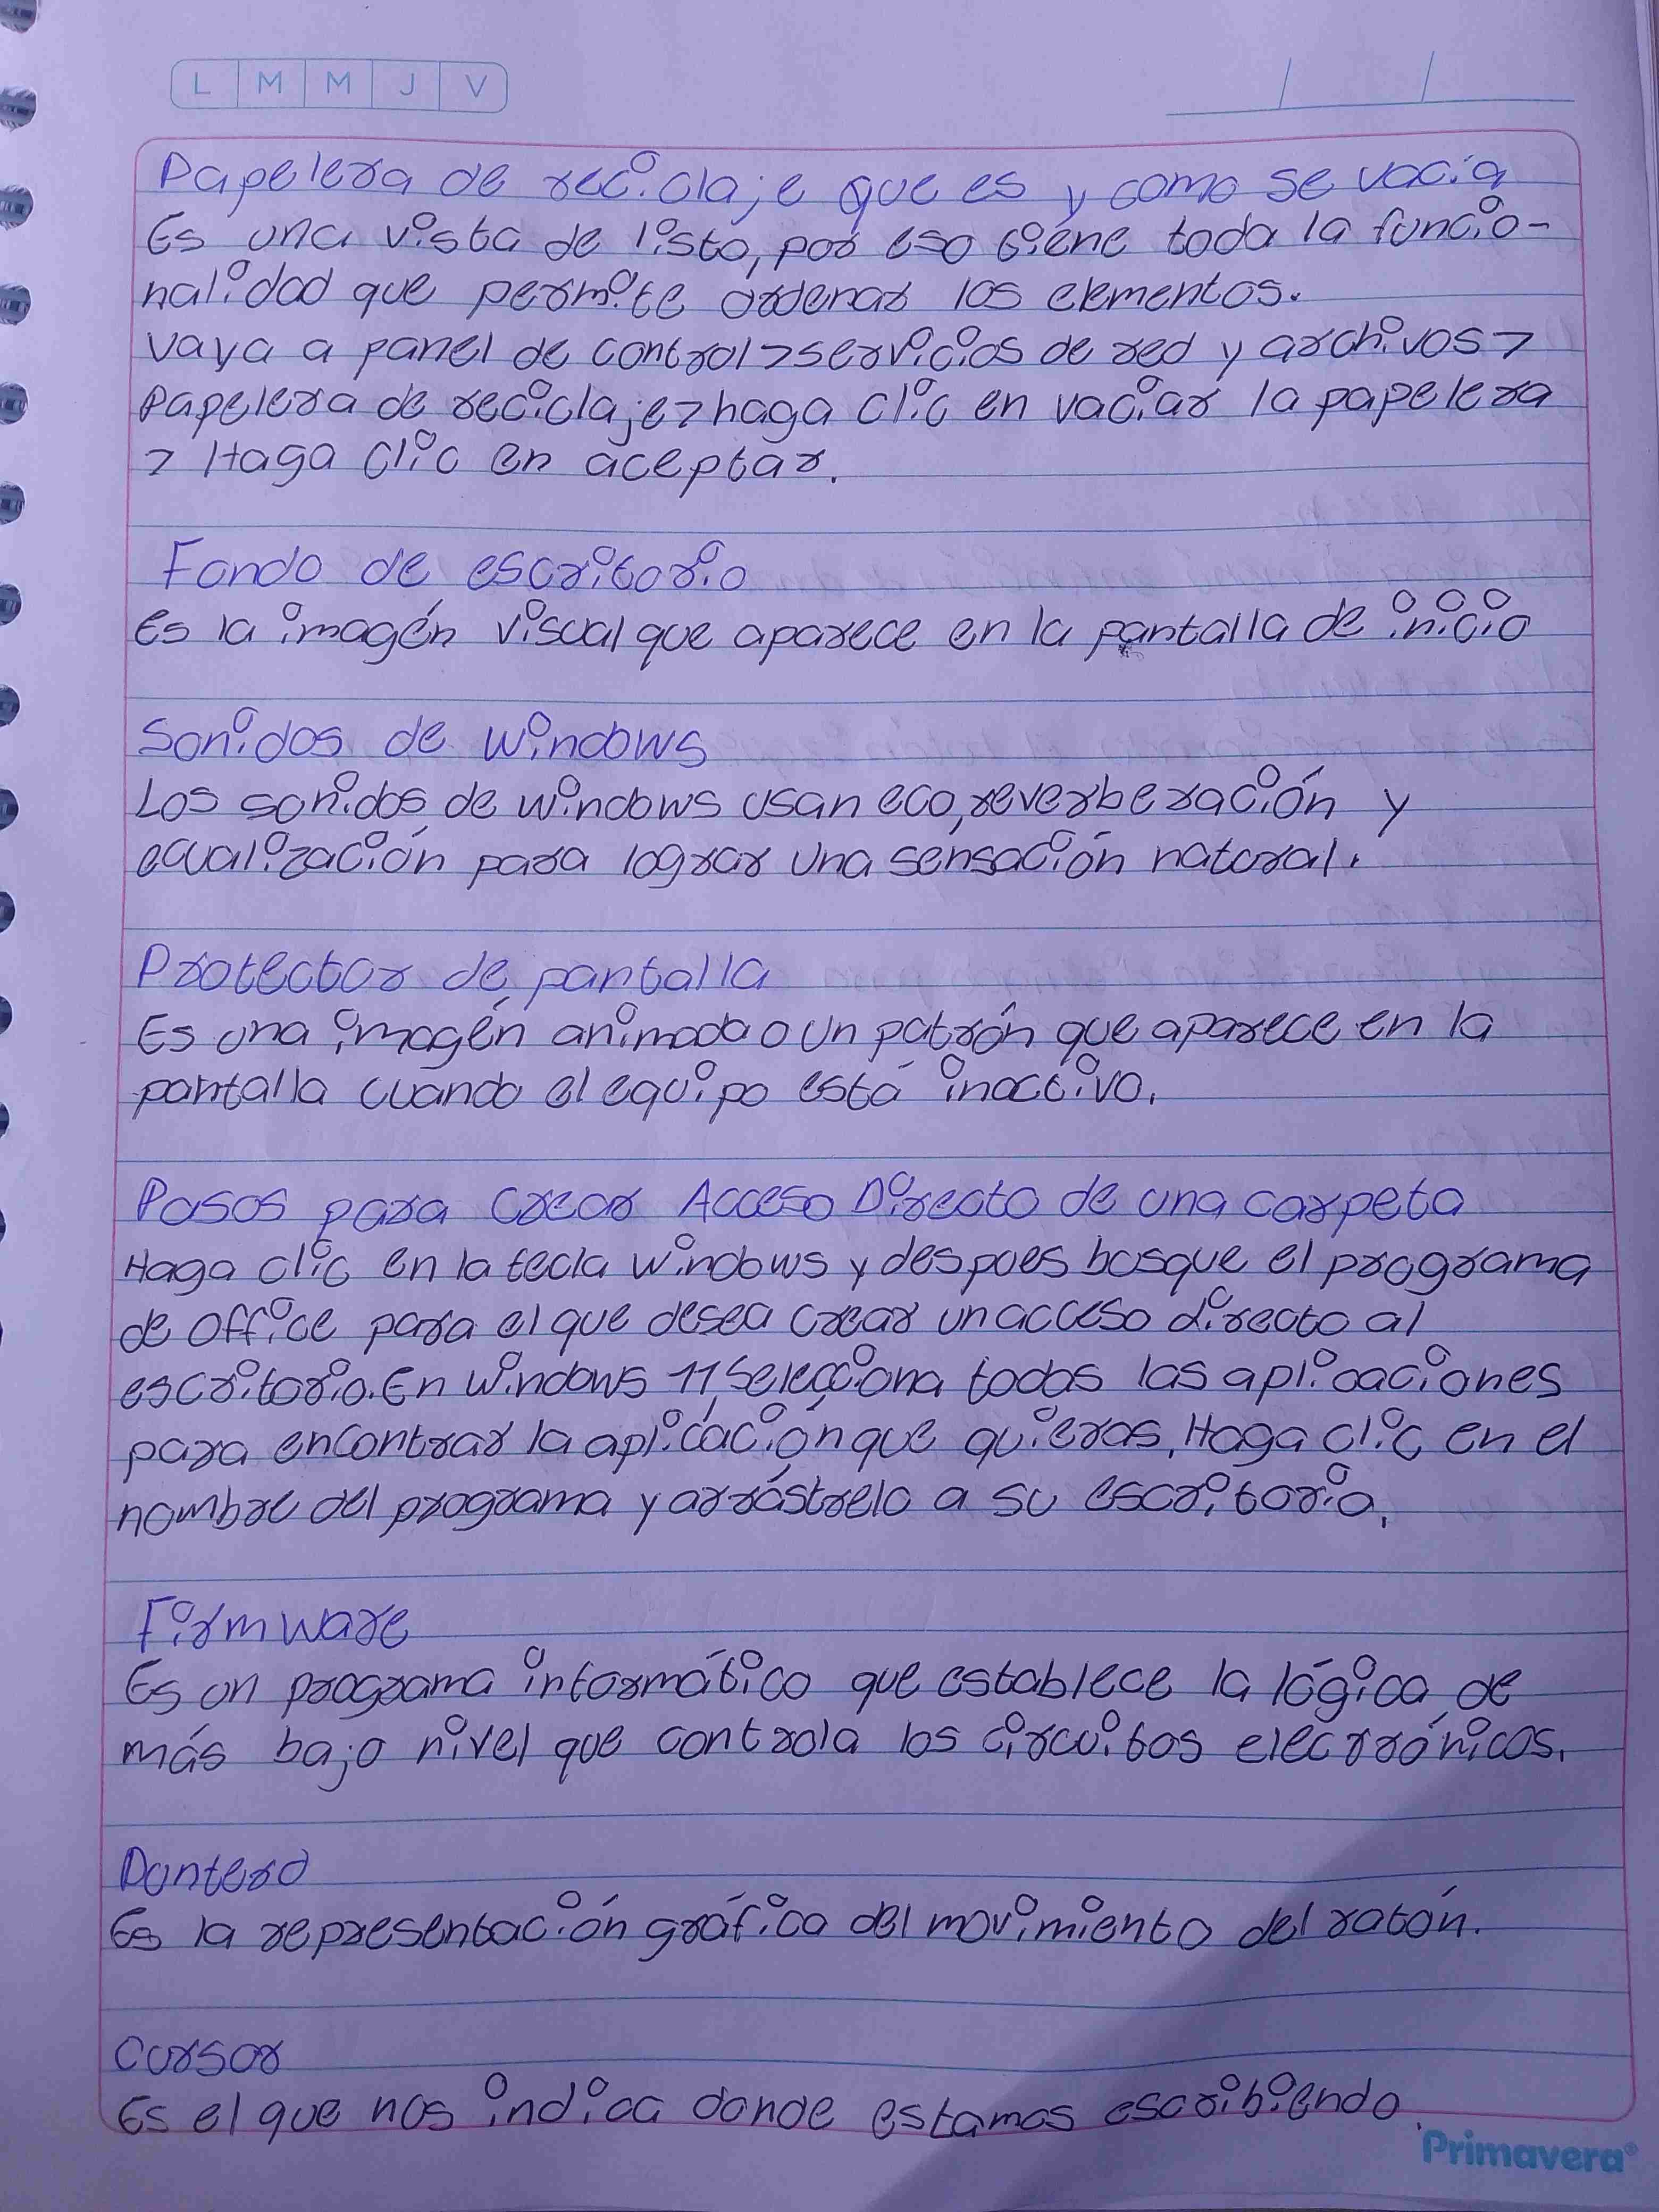 L M M J V
Papelera de reciclaje que es y como se vacia
Es una vista de listo, por eso tiene toda la funcio-
nalidad que permite ordenar los elementos.
Vaya a panel de control > servicios de red y archivos >
Papelera de reciclaje > haga clic en vaciar la papelera
> Haga clic en aceptar.
Fondo de escritorio
Es la imagén visual que aparece en la pantalla de inicio
Sonidos de windows
Los sonidos de windows usan eco, reverberación y
equalización para lograr una sensación natural.
Protector de pantalla
Es una imagén animada o un patrón que aparece en la
pantalla cuando el equipo está inactivo.
Pasos para crear Acceso Directo de una carpeta
Haga clic en la tecla windows y despues busque el programa
de office para el que desea crear un acceso directo al
escritorio. En windows 11, selecciona todas las aplicaciones
para encontrar la aplicación que quieras, Haga clic en el
nombre del programa y arrástrelo a su escritorio.
Firmware
Es un programa informático que establece la lógica de
más bajo nivel que controla los circuitos electrónicos.
Puntero
Es la representación gráfica del movimiento del ratón.
Cursor
Es el que nos indica donde estamos escribiendo.
Primavera